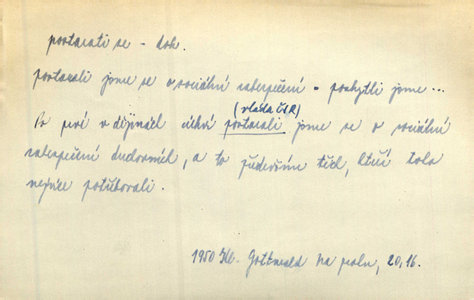 postarati se - dok.
postarali jsme se o sociální zabezpečení - poskytli jsme...
(vláda ČSR)
Po prvé v dějinách církví postarali jsme se o sociální
zabezpečení duchovních, a to především těch, kteří toho
nejvíce potřebovali.
1950 Kl. Gottwald Na prahu, 20,16.